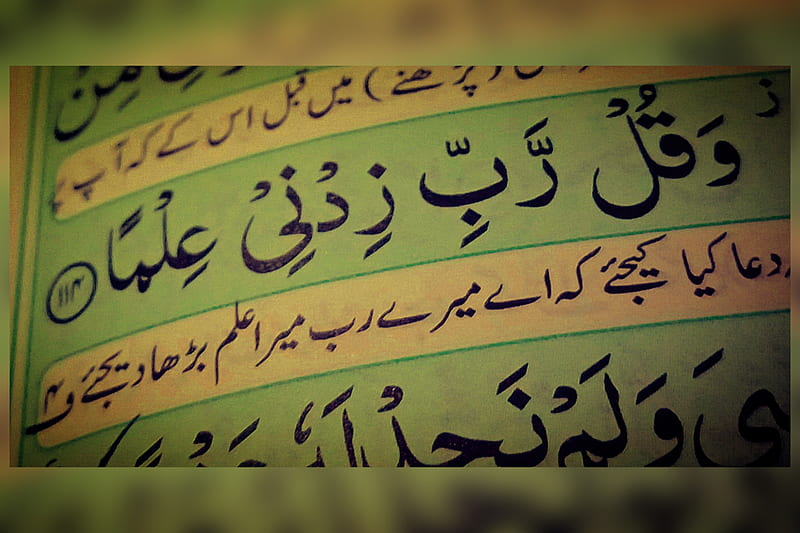 مِنْ
پڑھنے) میں قبل اس کے کہ آپ پر
وَقُلْ رَّبِّ زِدْنِيْ عِلْمًا ۱۱۴
دعا کیا کیجئے کہ اے میرے رب میرا علم بڑھا دیجئے ف۴
وَلَمْ نَجِدْ لَهٗ